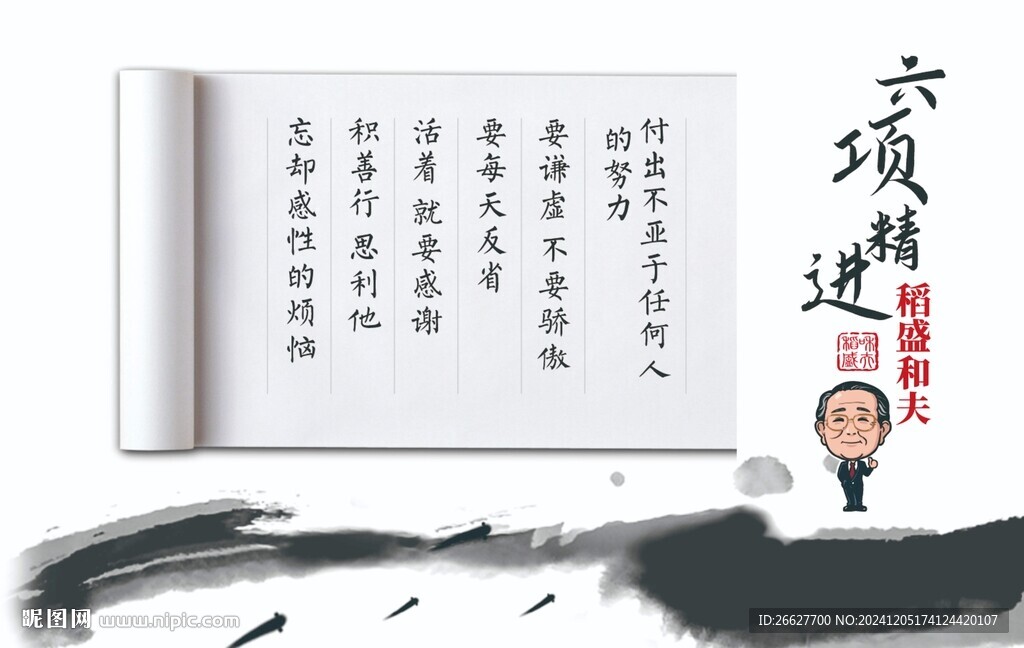 六项精进
稻盛和夫
稻盛
和夫
付出不亚于任何人
的努力
要谦虚 不要骄傲
要每天反省
活着 就要感谢
积善行 思利他
忘却感性的烦恼
昵图网 www.nipic.com
ID:26627700 NO:20241205174124420107